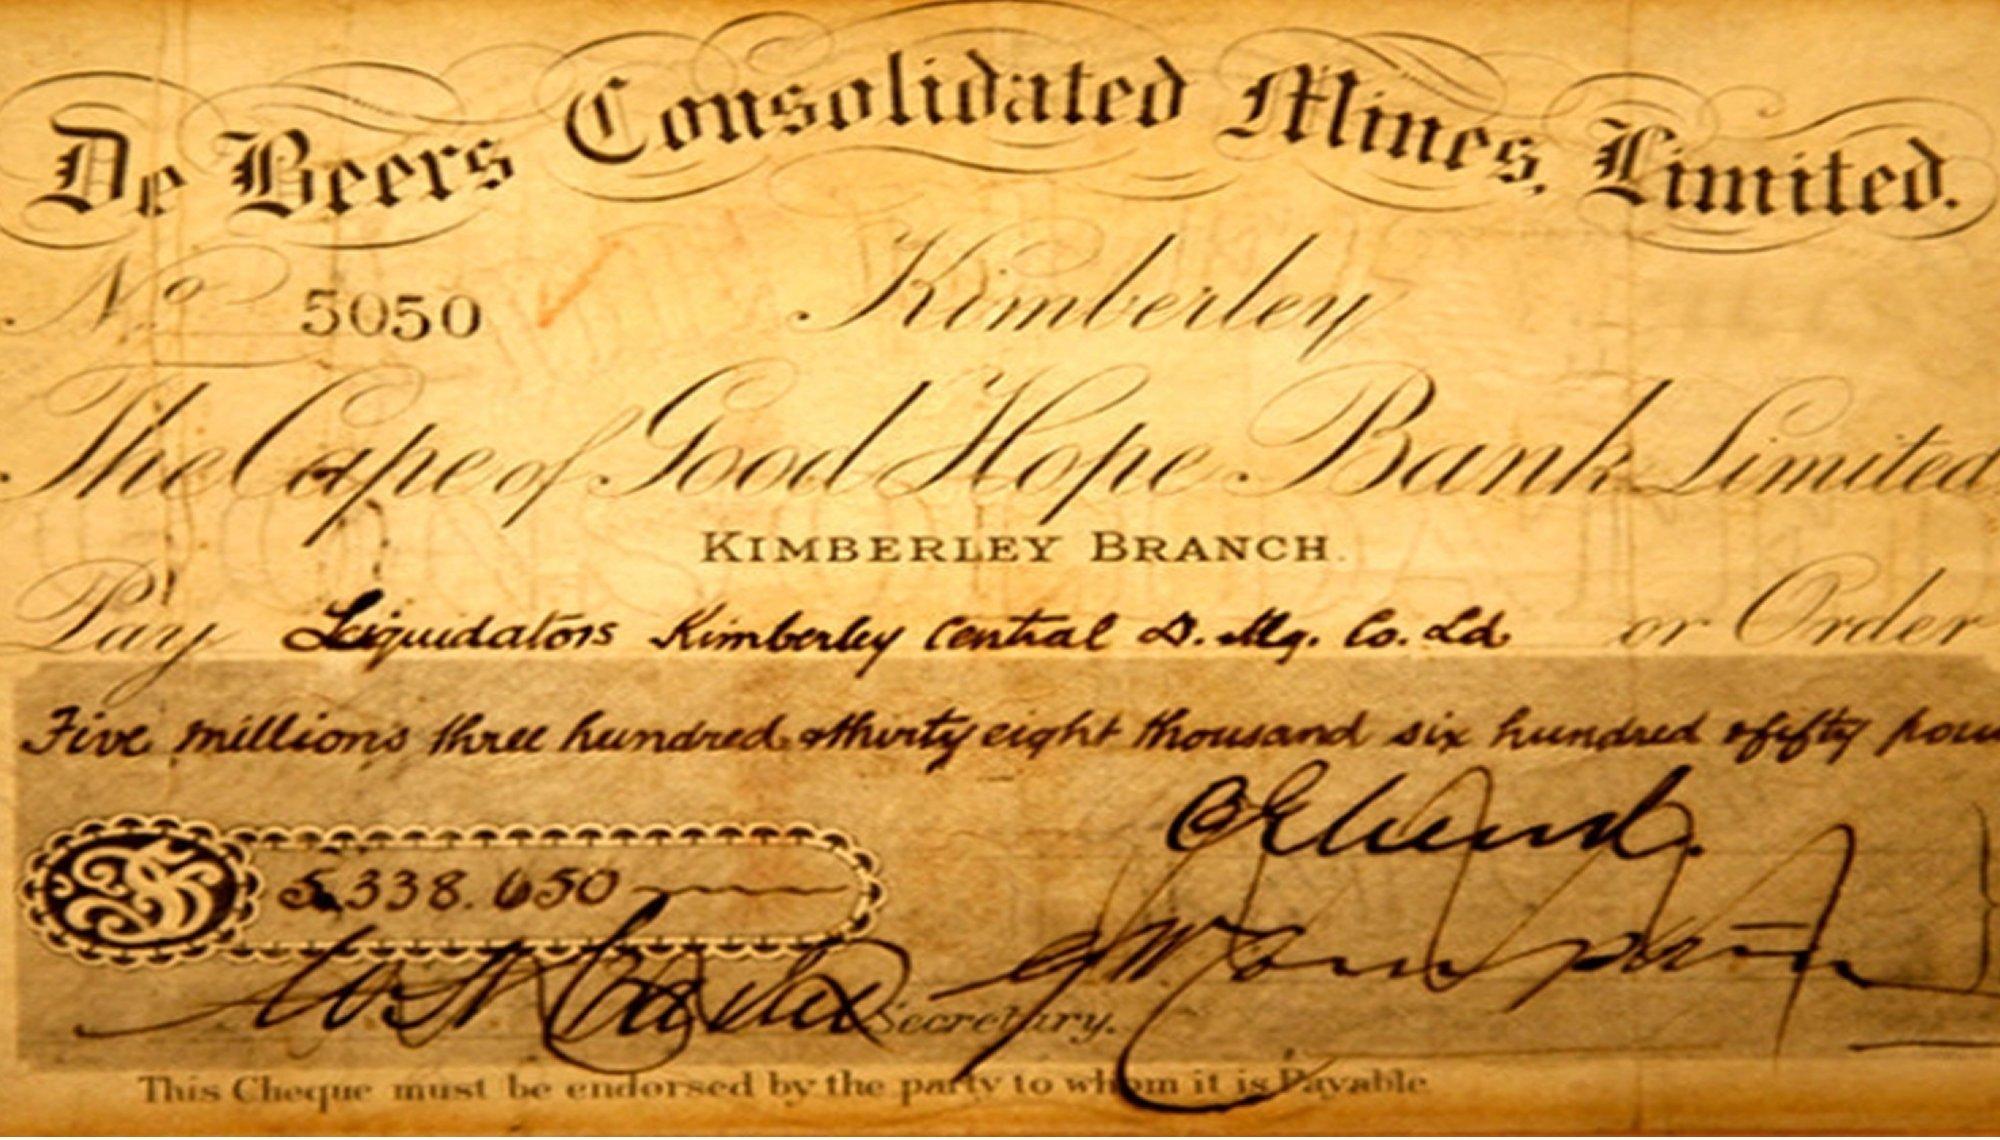 De Beers Consolidated Mines, Limited.
No 5050 Kimberley
The Cape of Good Hope Bank Limited
KIMBERLEY BRANCH.
Pay Liquidators Kimberley Central D. Mg. Co. Ld. or Order
Five millions three hundred & thirty eight thousand six hundred & fifty poun
£ 5,338.650
Secretary.
This Cheque must be endorsed by the party to whom it is Payable.